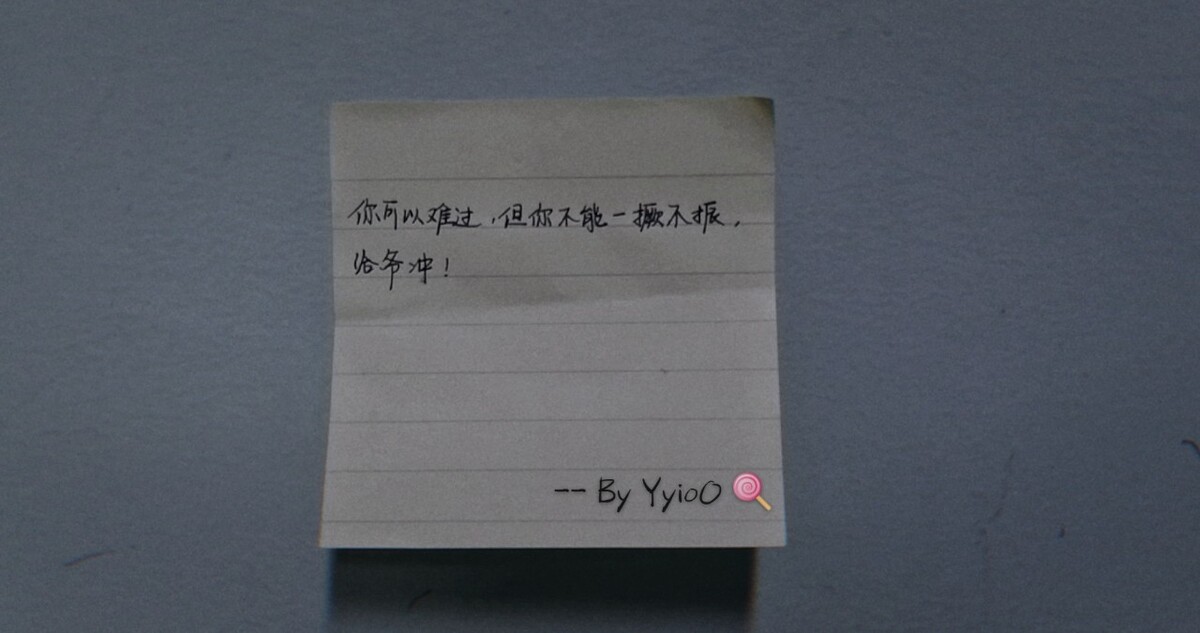 你可以难过，但你不能一撅不振，
给爷冲！
-- By YyioO🍭